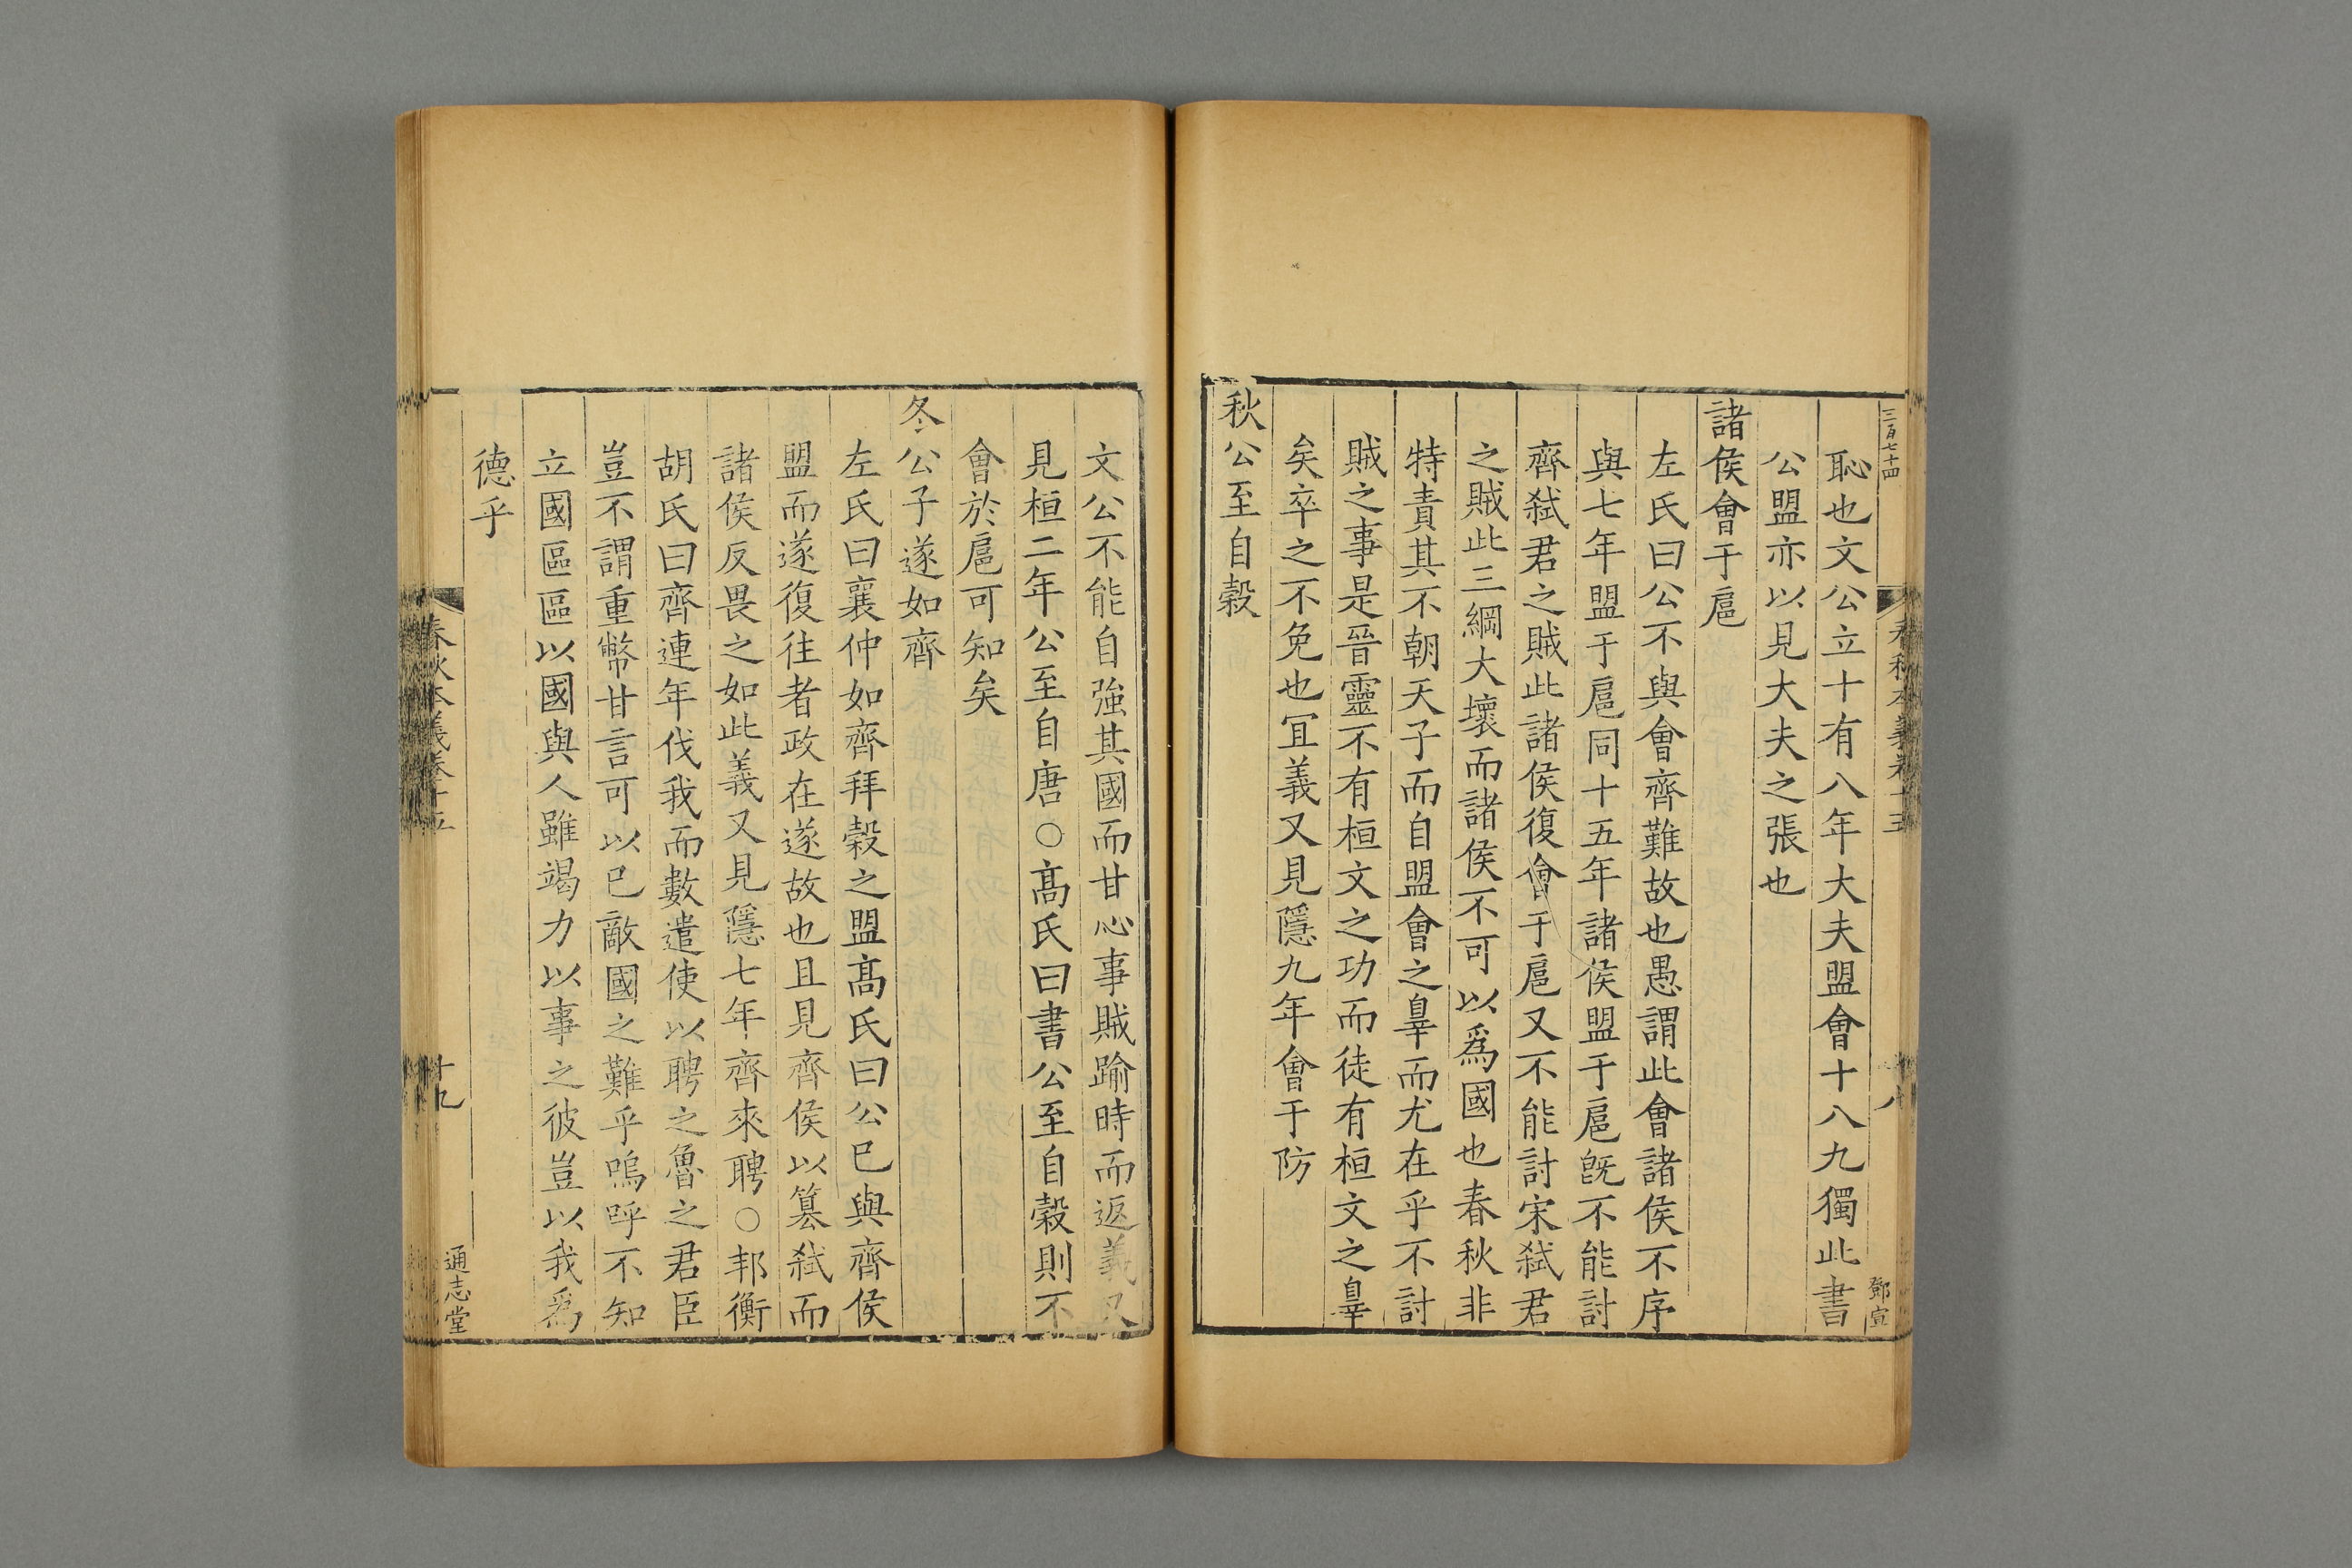 三百七十四
鄧宣
恥也文公立十有八年大夫盟會十八九獨此書
公盟亦以見大夫之張也
諸侯會于扈
左氏曰公不與會齊難故也愚謂此會諸侯不序
與七年盟于扈同十五年諸侯盟于扈旣不能討
齊弑君之賊此諸侯復會于扈又不能討宋弑君
之賊此三綱大壞而諸侯不可以爲國也春秋非
特責其不朝天子而自盟會之辠而尤在乎不討
賊之事是晉靈不有桓文之功而徒有桓文之辠
矣卒之不免也冝義又見隱九年會于防
秋公至自穀
文公不能自強其國而甘心事賊踰時而返義又
見桓二年公至自唐○髙氏曰書公至自穀則不
會於扈可知矣
冬公子遂如齊
左氏曰襄仲如齊拜穀之盟髙氏曰公已與齊侯
盟而遂復往者政在遂故也且見齊侯以簒弑而
諸侯反畏之如此義又見隱七年齊來聘○邦衡
胡氏曰齊連年伐我而數遣使以聘之魯之君臣
豈不謂重幣甘言可以已敵國之難乎嗚呼不知
立國區區以國與人雖竭力以事之彼豈以我爲
德乎
春秋本義卷十五
十九
通志堂